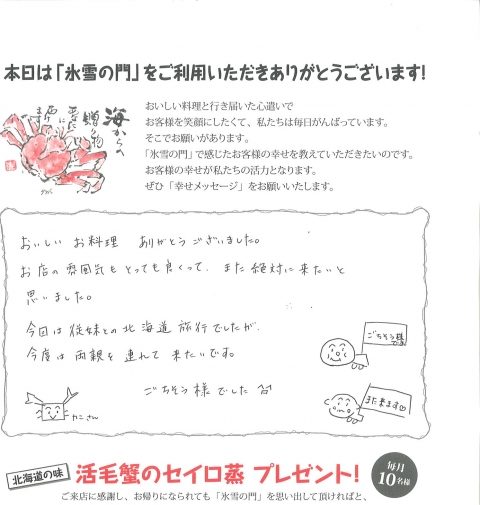 本日は「氷雪の門」をご利用いただきありがとうございます!
海からの
贈り物
おいしい料理と行き届いた心遣いで
お客様を笑顔にしたくて、私たちは毎日がんばっています。
そこでお願いがあります。
「氷雪の門」で感じたお客様の幸せを教えていただきたいのです。
お客様の幸せが私たちの活力となります。
ぜひ「幸せメッセージ」をお願いいたします。
おいしい お料理 ありがとうございました。
お店の雰囲気もとっても良くって、また絶対に来たいと
思いました。
今回は従妹との北海道旅行でしたが、
今度は両親を連れて来たいです。
ごちそう様でした
ごちそう様
です
また来ます
カニさん
北海道の味
活毛蟹のセイロ蒸 プレゼント!
毎月
10名様
ご来店に感謝し、お帰りになられても「氷雪の門」を思い出して頂ければと、